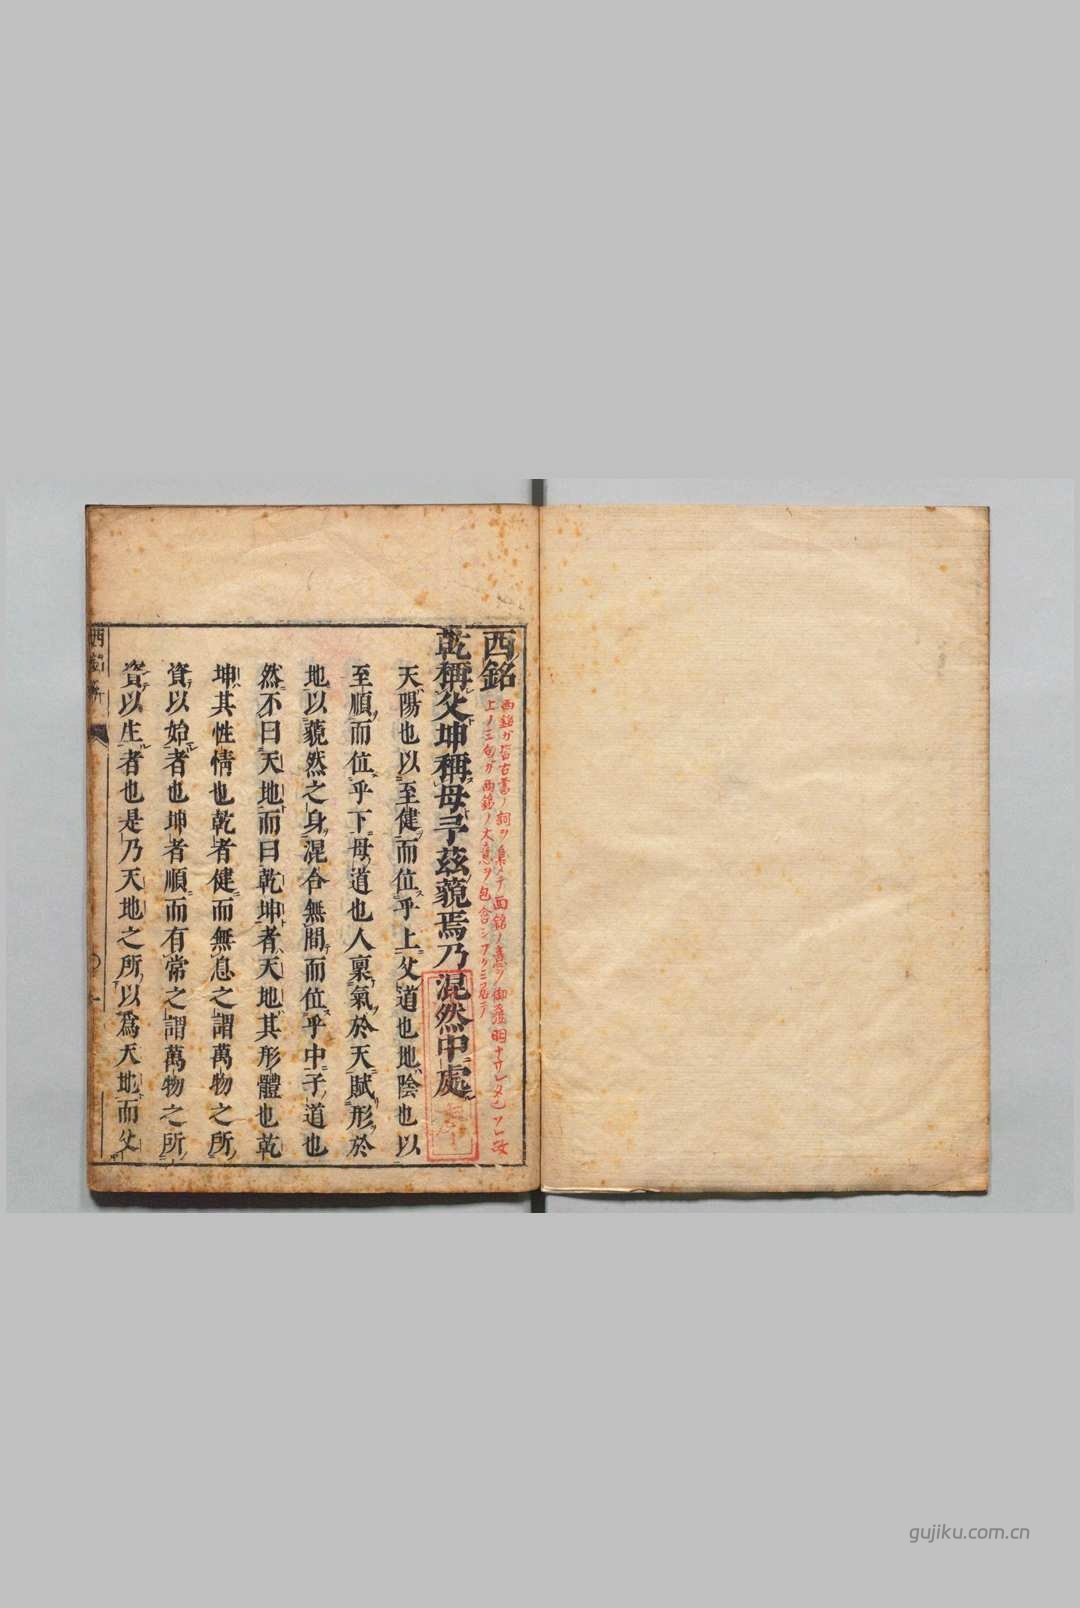 西銘
西銘ガ皆古書ノ詞ヲ集メテ西銘ノ意ヲ
上ノ三句ガ西銘ノ大意ヲ包含シ
乾稱父坤稱母予茲藐焉乃混然中處
天陽也以至健而位乎上父道也地陰也以
至順而位乎下母道也人稟氣於天賦形於
地以藐然之身混合無間而位乎中子道也
然不曰天地而曰乾坤者天地其形體也乾
坤其性情也乾者健而無息之謂萬物之所
資以始者也坤者順而有常之謂萬物之所
資以生者也是乃天地之所以爲天地而父
西銘解
gujiku.com.cn